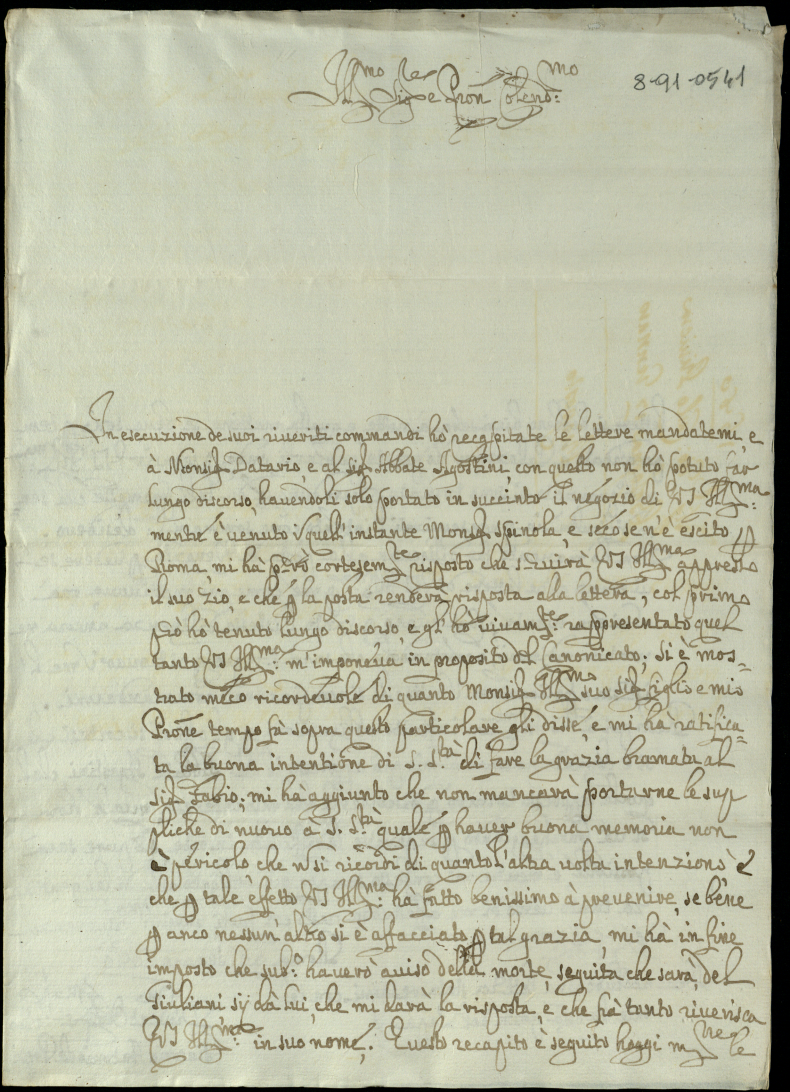 Ill.mo Sig.re e Pron Colend:mo
8-91-0541
In esecuzione de suoi riveriti commandi hò recapitate le lettere mandatemi, e
à Monsig.r Datario, e al sig.r Abbate Agostini, con questo non hò potuto far
lungo discorso, havendoli solo portato in succinto il negozio di VS Ill.ma:
mente è venuto i quell'instante Monsig.r Spinola, e seco se n'è escito p
Roma mi hà però cortesem.te risposto che servirà VS Ill.ma appresso
il suo zio, e che p la posta renderà risposta alla lettera; col primo
poi hò tenuto lungo discorso, e gl'hò vivam.te: rappresentato quel
tanto VS Ill.ma: m'imponeva in proposito del Canonicato; si è mos=
trato meco ricordevole di quanto Monsig.r Ill.mo suo sig.r figlio e mio
Prone tempo fà sopra questo particolare gli disse, e mi ha ratifica=
ta la buona intentione di S. S.tà di fare la grazia bramata al
sig.r Fabio; mi hà aggiunto che non mancarà portarne le sup
pliche di nuovo à S. S.tà quale p haver buona memoria non
è pericolo che n si ricordi di quanto l'altra volta intenzionò e
che p tale effetto VS Ill.ma: hà fatto benissimo à prevenire, se bene
p anco nessun'altro si è affacciato p tal grazia, mi hà in fine
imposto che sub.o haverò aviso della morte, seguita che sarà, del
Giuliani sij dà lui, che mi darà la risposta, e che frà tanto riverisca
VS Ill.ma: in suo nome. Questo recapito è seguito hoggi m ne le